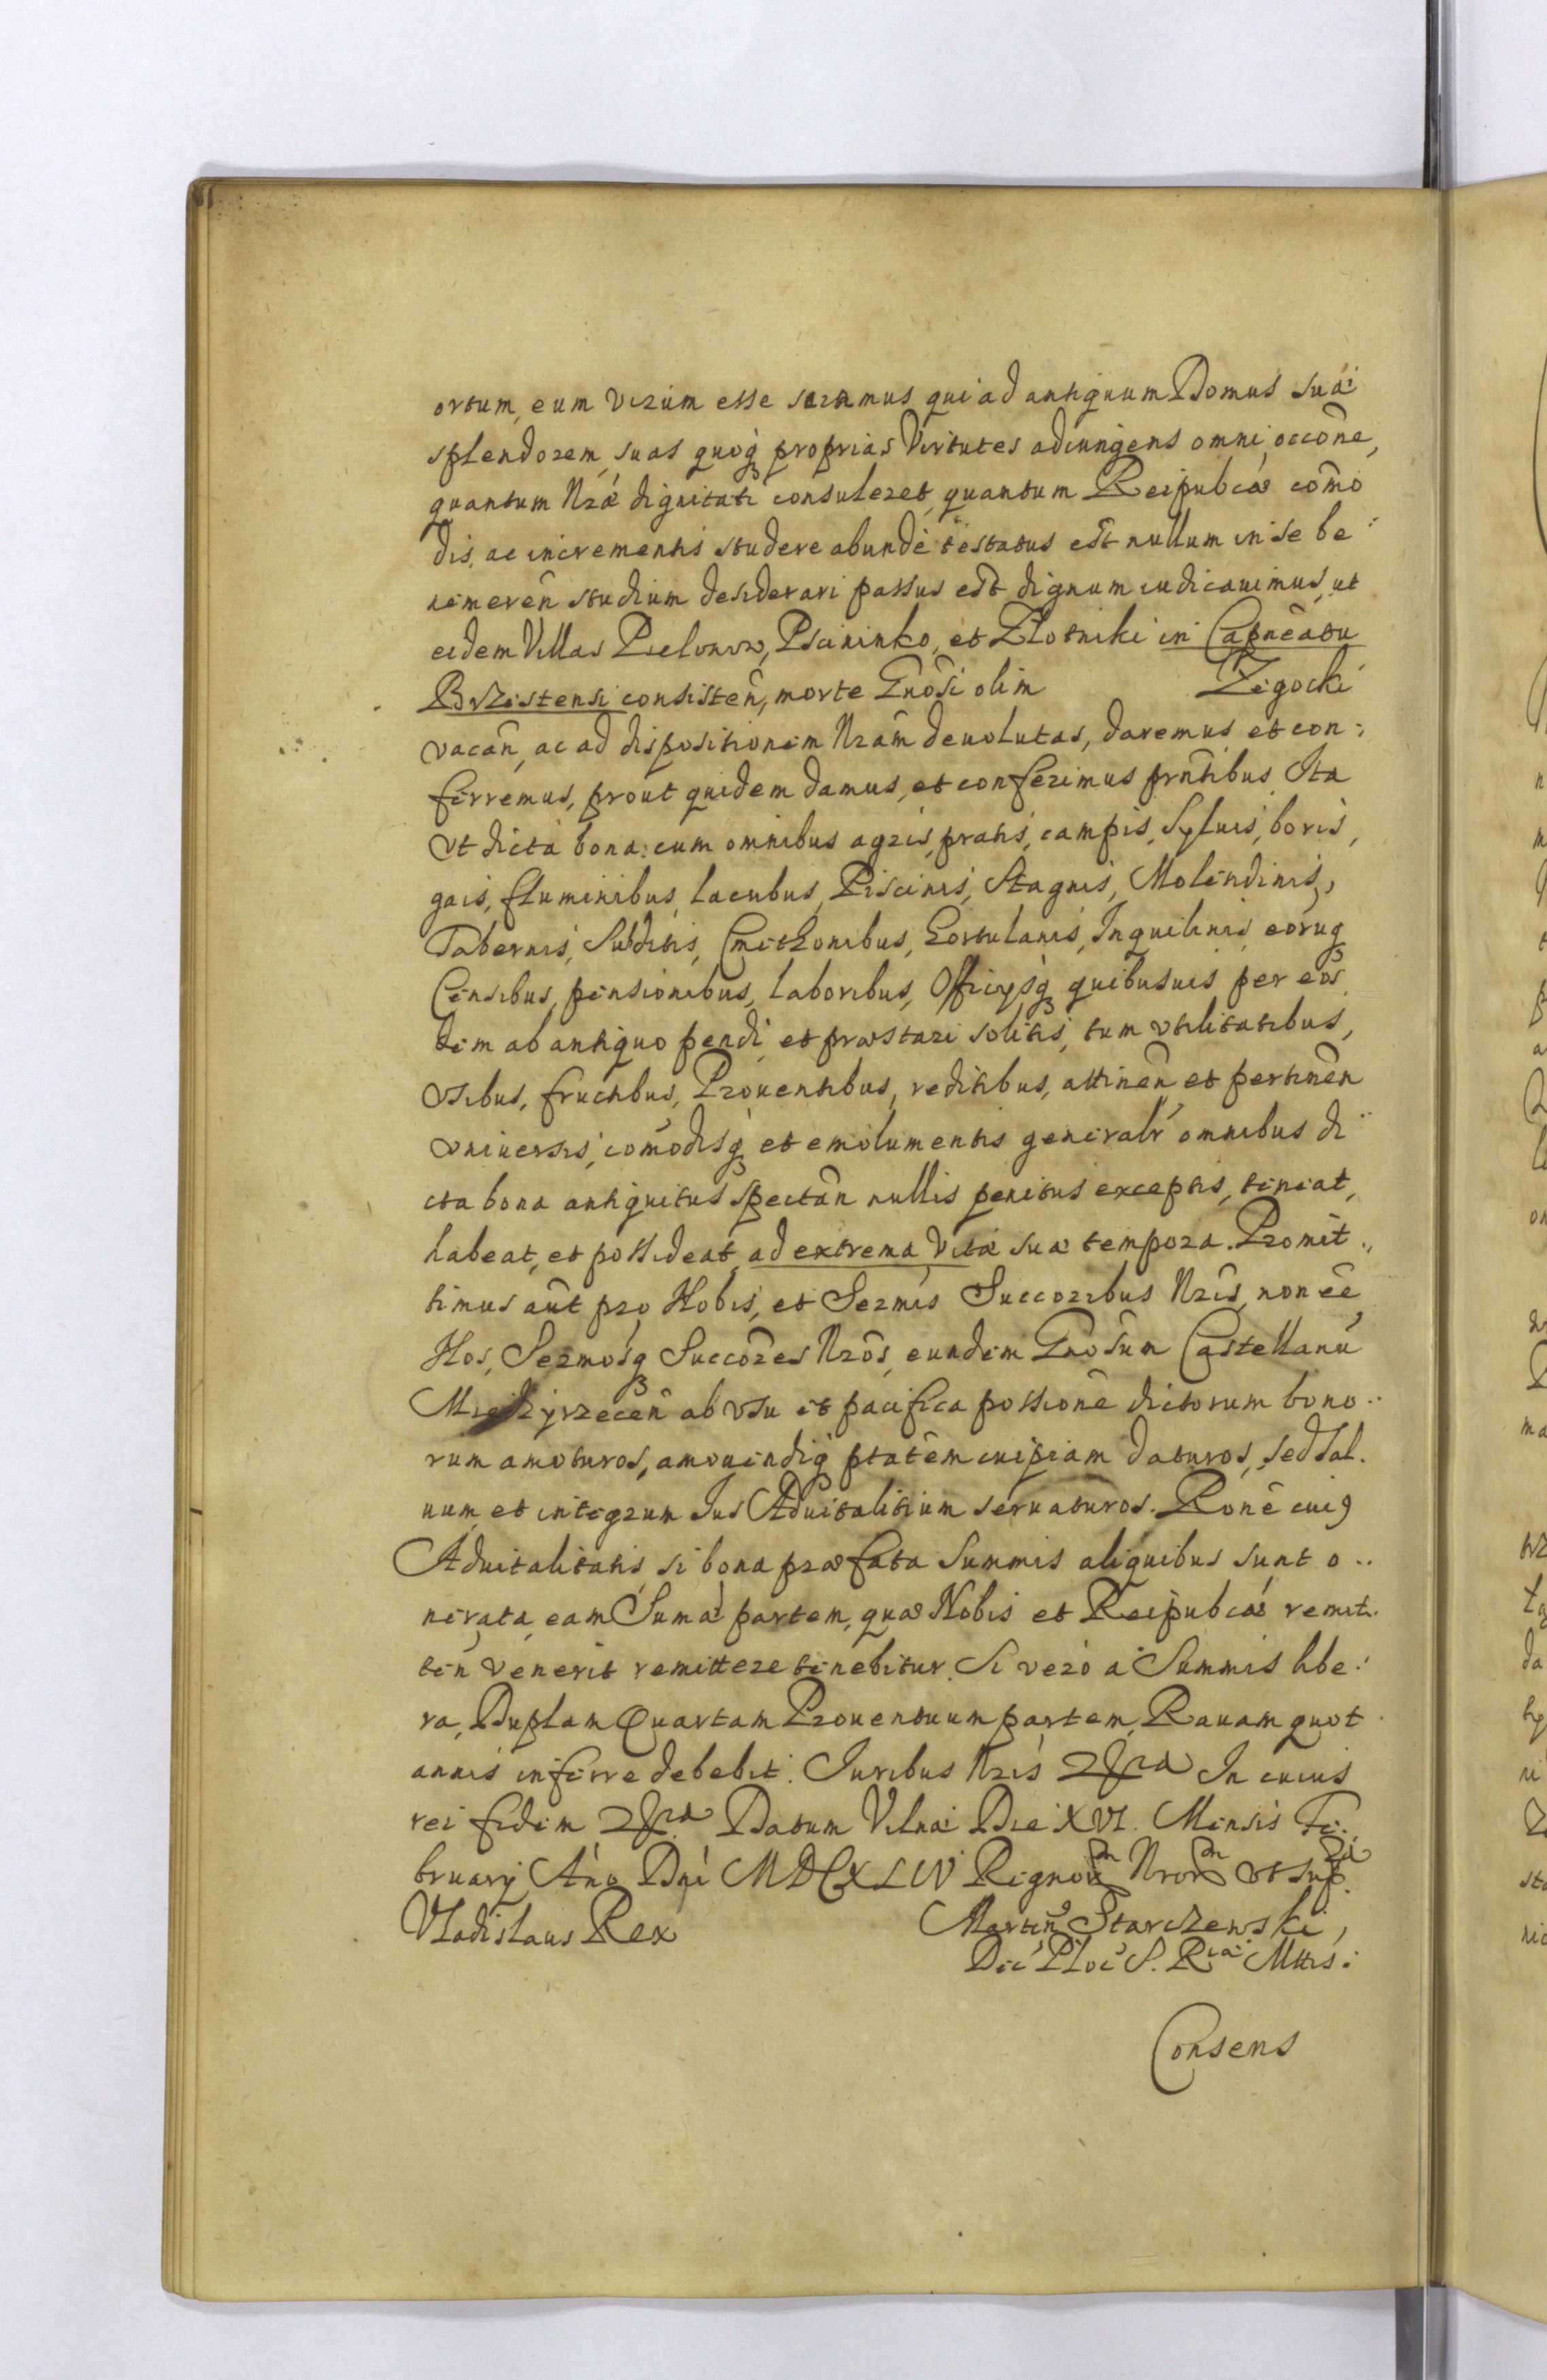 ortum, eum virum esse sciamus, qui ad antiquum Domus suæ
splendorem, suas quoq́ proprias Virtutes adiungens omni occõne,
quantum Nræ dignitati consuleret, quantum Reipubcæ com̃o
dis, ac incrementis studere abundè testatus est nullum in se be
nemeren̄ studium desiderari passus est dignum iudicauimus, ut
eidem Villas Pielonow, Pscininko, et Złotniki in Capnēatu
Brzestensi consisten̄, morte Gnōsi olim Zegocki
vacan̄, ac ad dispositionem Nrām deuolutas, daremus et con:
ferremus, prout quidem damus, et conferimus prn̄tibus. Ita
Vt dicta bona cum omnibus agris, pratis, campis, Syluis, boris,
gais, fluminibus, lacubus, Piscinis, Stagnis, Molendinis,
Tabernis, Subditis, Cmethonibus, Hortulanis, Inquilinis, eorūq
Censibus, pensionibus, laboribus, Officijsq́ quibusuis per eos
dem ab antiquo pendi, et præstari solitis, tum vtilitatibus,
vsibus, fructibus, Prouentibus, reditibus, attinen̄ et pertinen̄
vniuersis, com̃odisq́ et emolumentis generalr̄ omnibus di
cta bona antiquitus spectan̄ nullis penitus exceptis, teneat,
habeat, et possideat, ad extrema Vitæ suæ tempora. Promit
timus aūt pro Nobis, et Sermis Succoribus Nris, non eē
Nos, Sermosq́ Succōres Nrōs, eundem Gnōsum Castellanū
Miedzyrzecen̄ ab vsu et pacifica possionē dictorum bono
rum amoturos, amouendiq́ ptatēm cuipiam daturos, sed sal
uum et integrum Ius Aduitalitium seruaturos. Ronē cui9
Aduitalitatis, si bona præfata Summis aliquibus sunt o
nerata, eam Sumæ partem, quæ Nobis et Reipubcæ remit
ten̄ venerit remittere tenebitur. Si vero à Summis libe
ra, Duplam Quartam Prouentuum partem, Rauam quot
annis inferre debebit. Iuribus Nris &ra In cuius
rei fidem &ra Datum Vilnæ Die XVI. Mensis Fe
bruarij Año Dni MDCXLIV Regnor Nror vt sup
Vladislaus Rex Martin9 Starczewski,
Dec Ploc S. Rıæ Mttis:
Consens